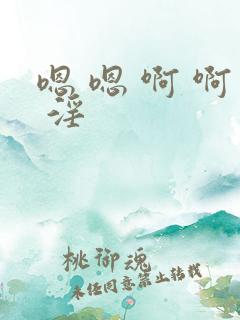 嗯嗯啊啊
淫
桃御魂
未经同意禁止转载